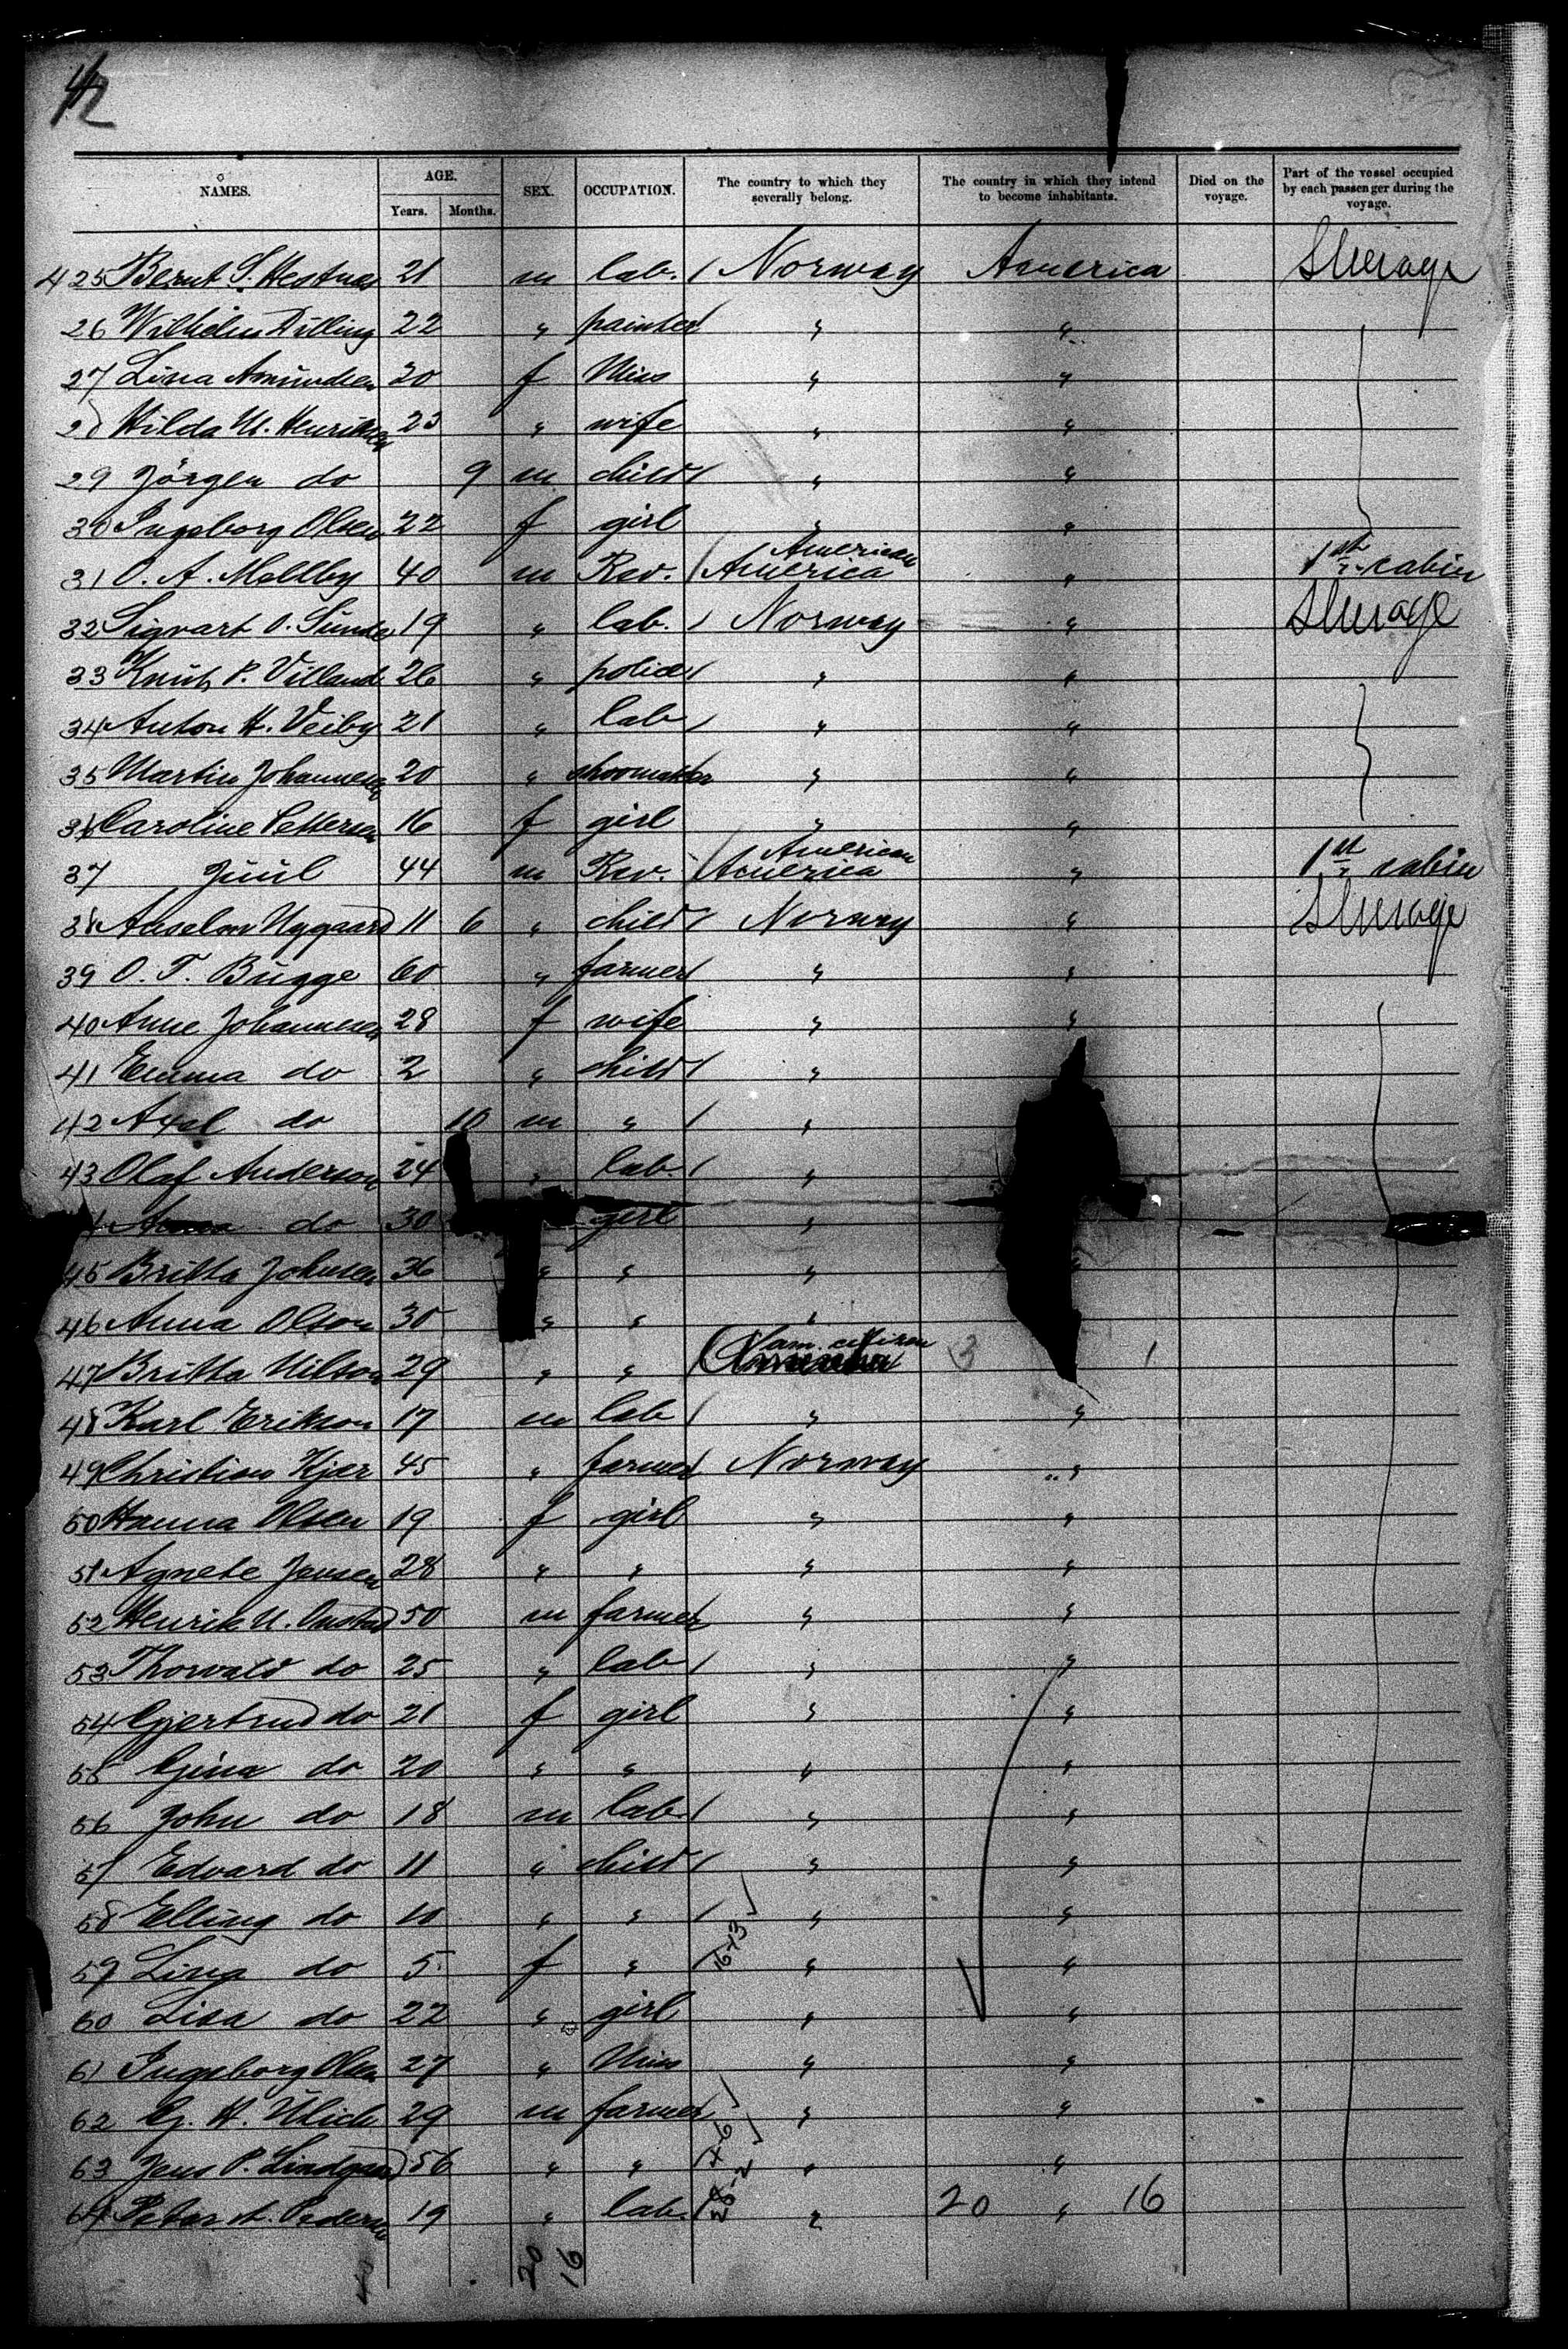 42
NAMES. AGE. Years. Months. SEX. OCCUPATION. The country to which they severally belong. The country in which they intend to become inhabitants. Died on the voyage. Part of the vessel occupied by each passenger during the voyage.
425 Bernt S. Hestnes 21 m lab. / Norway America Steerage
26 Wilhelm Dilling 22 " painter " "
27 Lina Amundsen 20 f Miss " "
28 Hilda M. Henriksen 23 " wife " "
29 Jörgen do 9 m child / " "
30 Ingeborg Olsen 22 f girl " "
31 O. A. Mellby 40 m Rev. / American America " 1st cabin
32 Sigvart O. Sunde 19 " lab. / Norway " Steerage
33 Knut P. Villand 26 " police / " "
34 Anton H. Veiby 21 " lab / " "
35 Martin Johannesen 20 " shoomaker " "
36 Caroline Petterson 16 f girl " "
37 Juul 44 m Rev. / American America " 1st cabin
38 Anselm Nygaard 11 6 " child / Norway " Steerage
39 O. T. Bugge 60 " farmer / " "
40 Anne Johannesen 28 f wife " "
41 Emma do 2 " child / "
42 Axel do 10 m " / "
43 Olaf Anderson 24 " lab. / "
Anna do 30 girl "
45 Britta Johnsen 36 " " " "
46 Anna Olson 30 " " "
47 Britta Nilson 29 " " / am. citizen 3 1
48 Karl Erikson 17 m lab / " "
49 Christian Kjer 45 " farmer / Norway "
50 Hanna Olsen 19 f girl " "
51 Agnete Jensen 28 " " " "
52 Henrik N. Onstad 50 m farmer / " "
53 Thorvald do 25 " lab / " "
54 Gjertrud do 21 f girl " "
55 Gina do 20 " " " "
56 John do 18 m lab. / " "
57 Edvard do 11 " child / " "
58 Elling do 10 " " / " "
59 Lina do 5 f " / 16-13 " "
60 Lisa do 22 " girl " "
61 Ingeborg Olsen 27 " Miss " "
62 G. H. Ulich 29 m farmer / " "
63 Jens P. Lindgaard 56 " " / " "
64 Peter A. Pedersen 19 " lab. / " 20 " 16
20 16